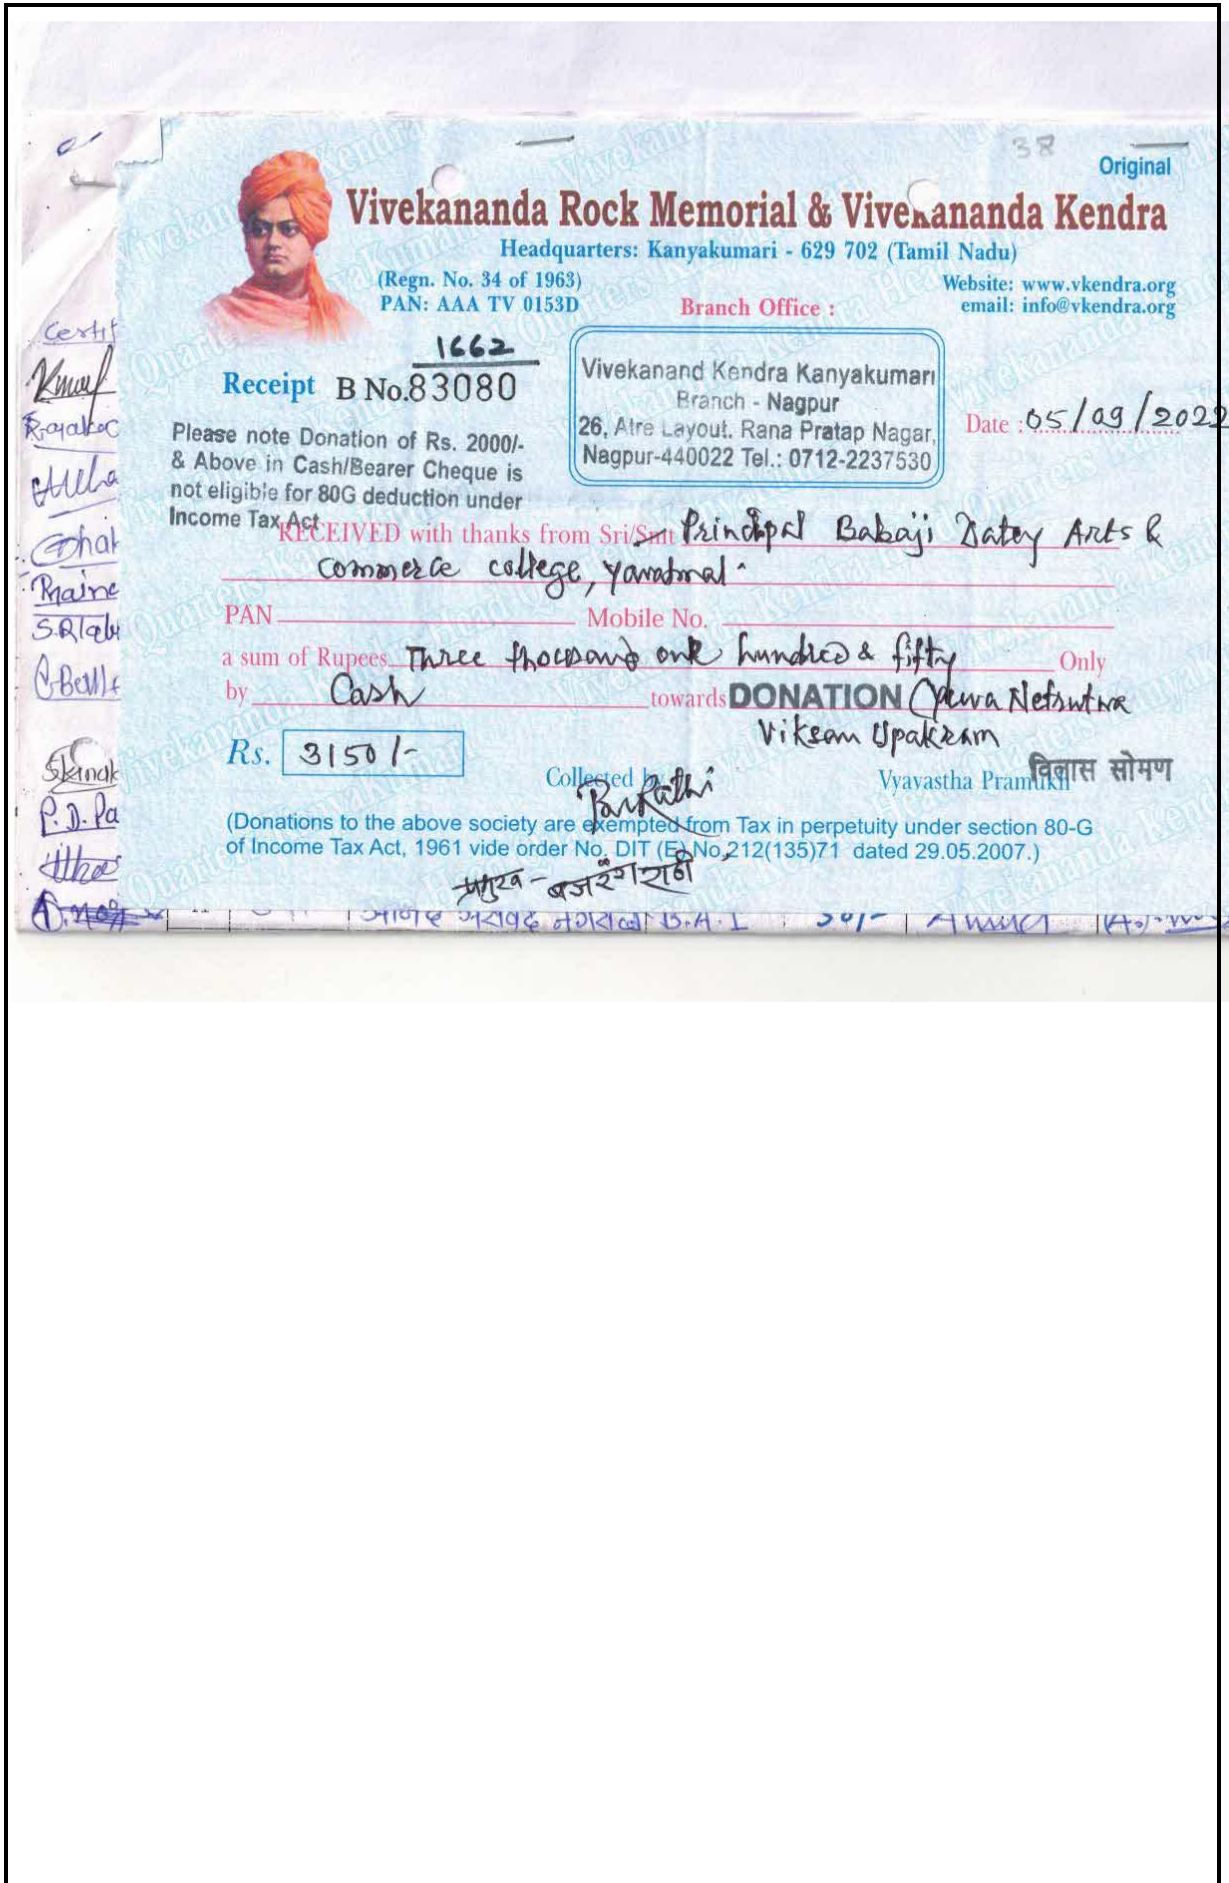 38
Original
Vivekananda Rock Memorial & Vivekananda Kendra
Headquarters: Kanyakumari - 629 702 (Tamil Nadu)
(Regn. No. 34 of 1963)
PAN: AAA TV 0153D
Website: www.vkendra.org
email: info@vkendra.org
Branch Office :
1662
Receipt B No.83080
Vivekanand Kendra Kanyakumari
Branch - Nagpur
26, Atre Layout. Rana Pratap Nagar,
Nagpur-440022 Tel.: 0712-2237530
Date : 05/09/2022
Please note Donation of Rs. 2000/-
& Above in Cash/Bearer Cheque is
not eligible for 80G deduction under
Income Tax Act
RECEIVED with thanks from Sri/Smt Principal Babaji Datey Arts &
commerce college, Yavatmal.
PAN Mobile No.
a sum of Rupees Three thousand one hundred & fifty Only
by Cash towards DONATION Netrutwa
Upakram
Rs. 3150/-
Collected by
Vyavastha Pramukh
विलास सोमण
(Donations to the above society are exempted from Tax in perpetuity under section 80-G
of Income Tax Act, 1961 vide order No. DIT (E) No,212(135)71 dated 29.05.2007.)
प्रमुख - बजरंग राठी
Certif
P.D. Pa
B.A. I 50/-